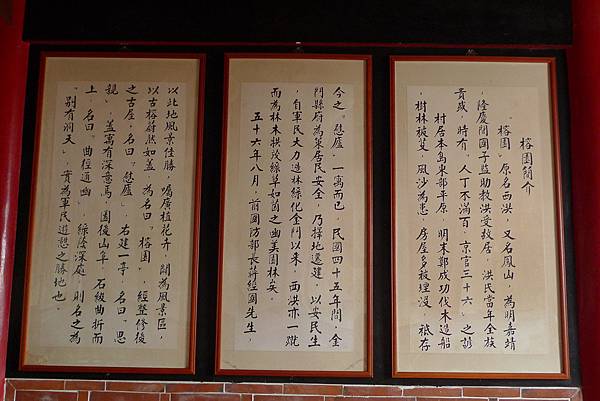 榕園簡介
「榕園」原名西洪，又名鳳山，為明嘉靖
、隆慶間國子監助教洪受故居，洪氏當年全族
貴盛，時有「人丁不滿百，京官三十六」之諺
村居本島東部平原，明末鄭成功伐木造船
，樹林被芟，風沙為患，房屋多被埋沒，祗存
今之「慰廬」一寓而已，民國四十五年間，金
門縣府為策居民安全，乃擇地還建，以安民生
，自軍民大力造林綠化金門以來，西洪亦一蹴
而為林木拱茂綠草如茵之幽美園林矣。
五十六年八月，前國防部長蔣經國先生，
以此地風景佳勝，囑廣植花卉，闢為風景區，
以古榕蔚然如蓋，為名曰「榕園」，經整修後
之古屋，名曰「慰廬」，右建一亭，名曰「思
親」，蓋寓有深意焉，園後山阜，石級曲折而
上，名曰「曲徑通幽」，綠蔭深處，則名之為
「別有洞天」，實為軍民遊憩之勝地也。